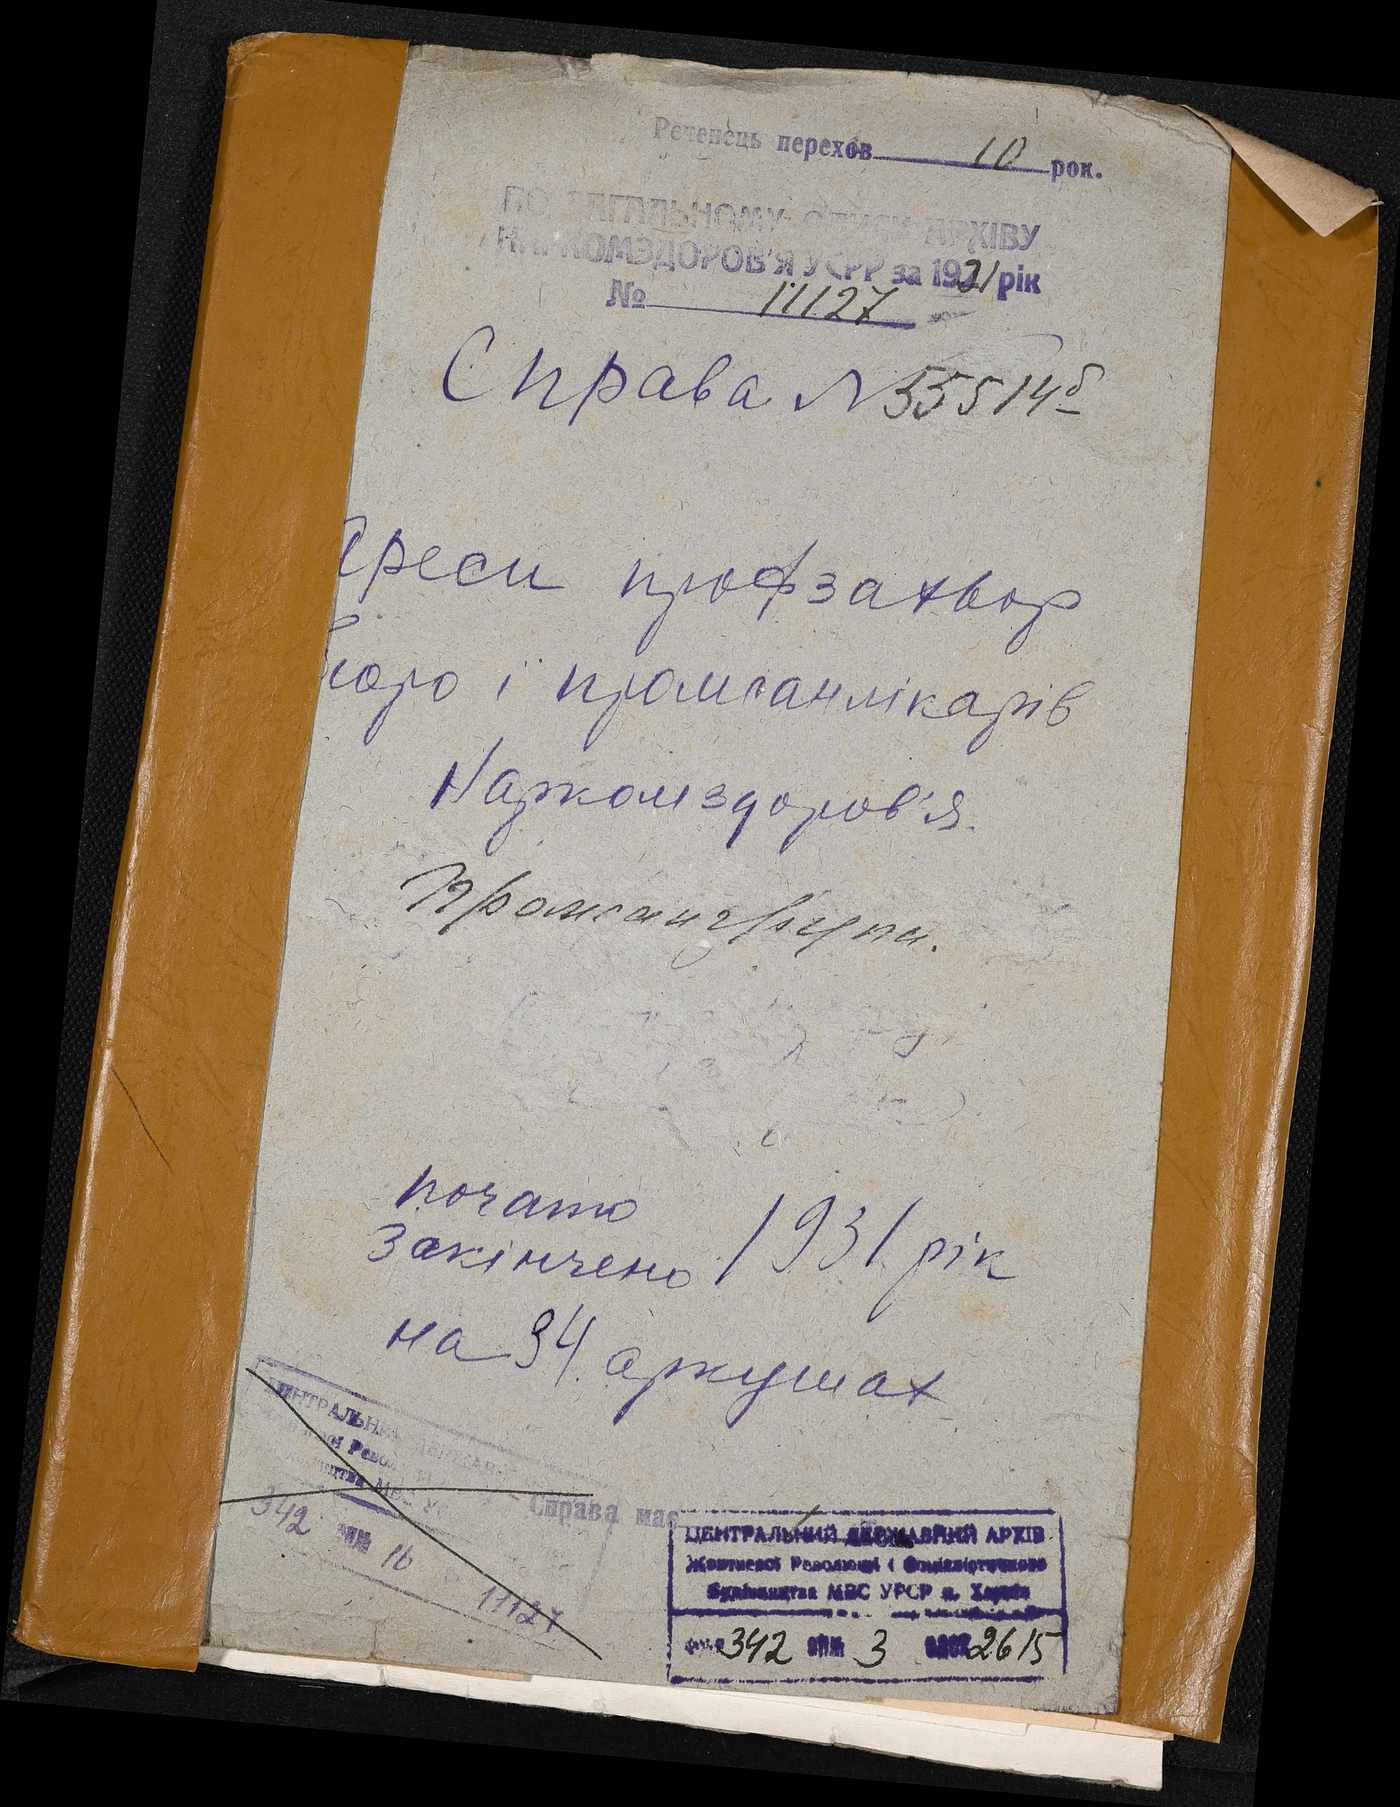 Речепець перехов 10 рок.
ПО ЗАГАЛЬНОМУ ОПИСИ АРХІВУ
НАРКОМЗДОРОВ'Я УСРР за 1921 рік
№ 11127
Справа N 555/4б
дреси профзахвор
бюро і промсанлікарів
Наркомздоров'я.
Промсангрупи.
почато
закінчено 1931 рік
на 34 аркушах
ЦЕНТРАЛЬНИЙ ДЕРЖАВН
ої Рево
МВС УР
342 опис 16
11127
Справа має
ЦЕНТРАЛЬНИЙ ДЕРЖАВНИЙ АРХІВ
Жовтневої Революції і Соціалістичного
Будівництва МВС УРСР м. Харків
фонд 342 опис 3 одоб 2615